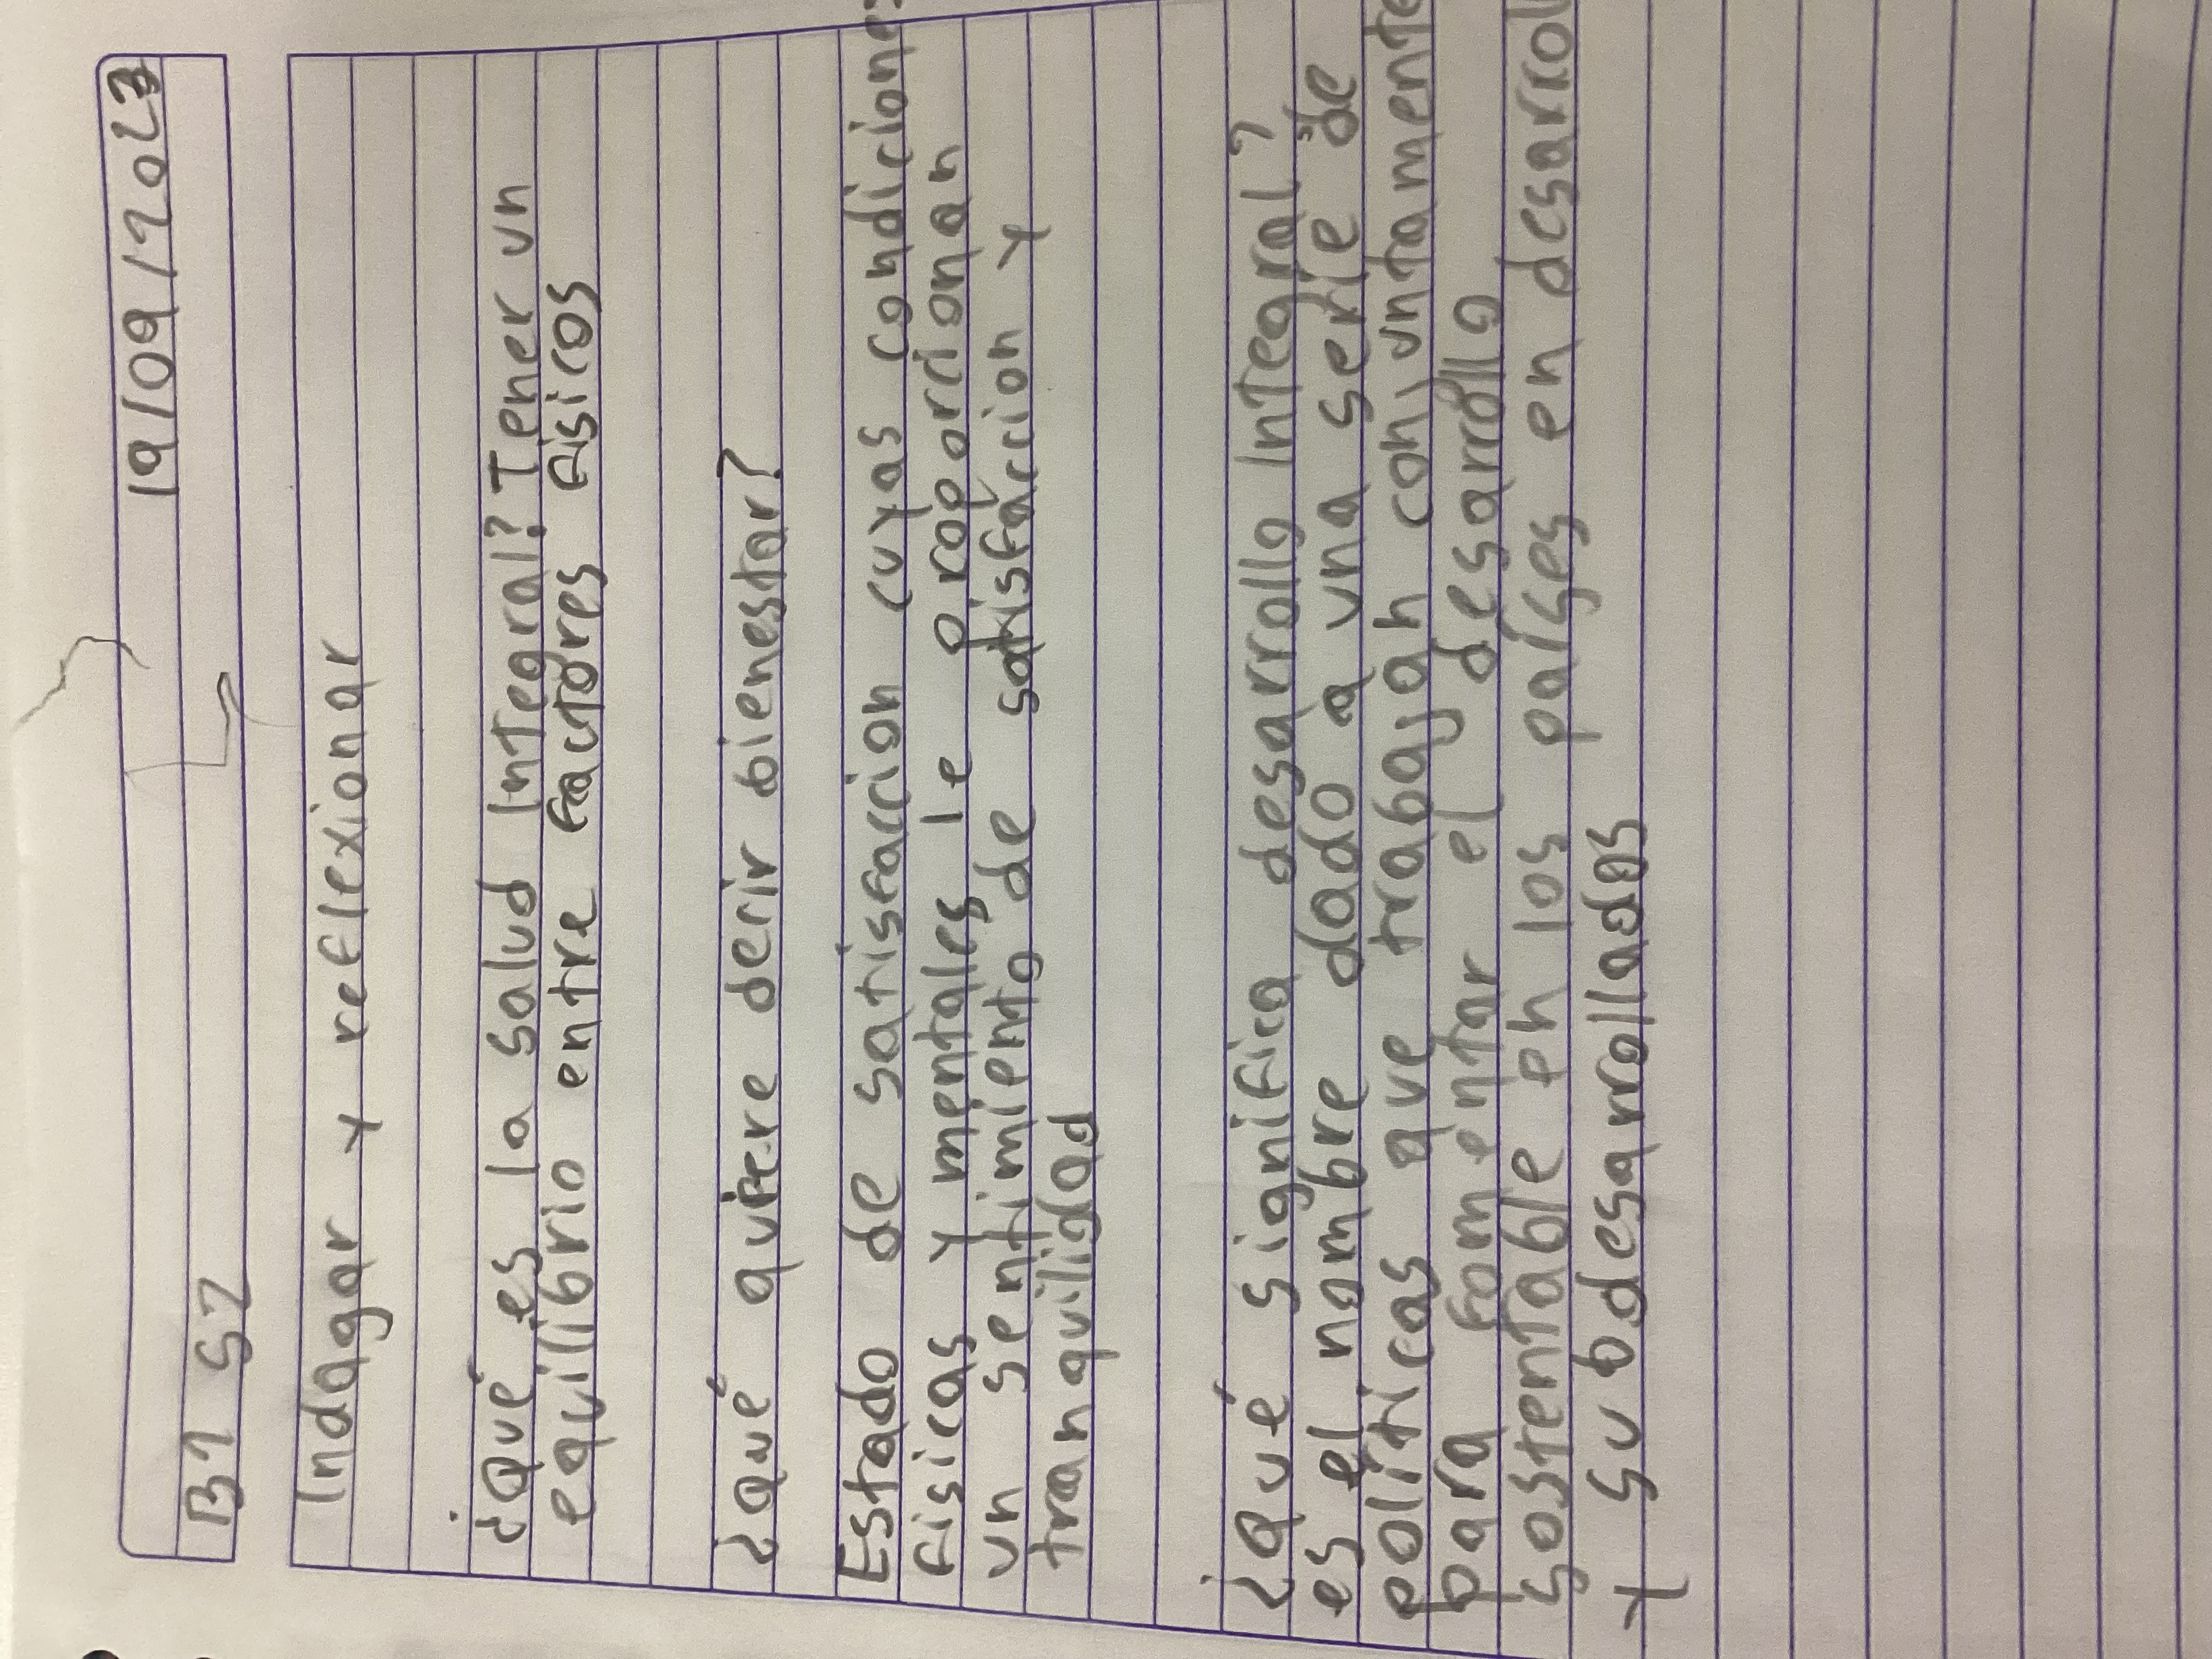 19/09/2023
B1 S2
Indagar y reflexionar
¿Qué es la salud Integral? Tener un
equilibrio entre factores fisicos
¿Qué quiere decir bienestar?
Estado de satisfaccion cuyas condiciones
fisicas y mentales le proporcionan
un sentimiento de satisfaccion y
tranquilidad
¿Qué significa desarrollo Integral?
es el nombre dado a una serie de
politicas que trabajan conjuntamente
para fomentar el desarrollo
sostentable en los países en desarrol
y subdesarrollados